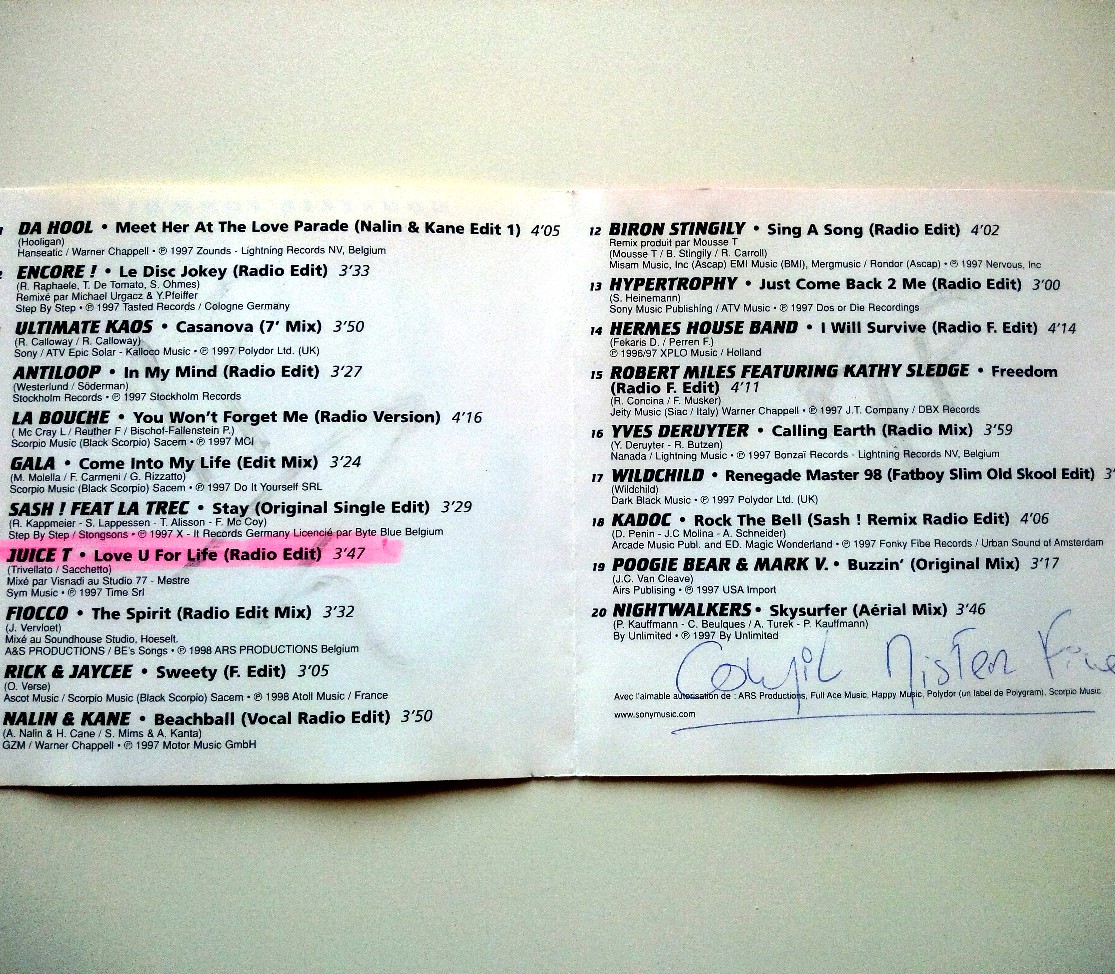 DA HOOL • Meet Her At The Love Parade (Nalin & Kane Edit 1) 4'05
(Hooligan)
Hanseatic / Warner Chappell • ℗ 1997 Zounds - Lightning Records NV, Belgium
ENCORE ! • Le Disc Jokey (Radio Edit) 3'33
(R. Raphaele, T. De Tomato, S. Ohmes)
Remixé par Michael Urgacz & Y.Pfeiffer
Step By Step • ℗ 1997 Tasted Records / Cologne Germany
ULTIMATE KAOS • Casanova (7' Mix) 3'50
(R. Calloway / R. Calloway)
Sony / ATV Epic Solar - Kalloco Music • ℗ 1997 Polydor Ltd. (UK)
ANTILOOP • In My Mind (Radio Edit) 3'27
(Westerlund / Söderman)
Stockholm Records • ℗ 1997 Stockholm Records
LA BOUCHE • You Won't Forget Me (Radio Version) 4'16
( Mc Cray L / Reuther F / Bischof-Fallenstein P.)
Scorpio Music (Black Scorpio) Sacem • ℗ 1997 MCI
GALA • Come Into My Life (Edit Mix) 3'24
(M. Molella / F. Carmeni / G. Rizzatto)
Scorpio Music (Black Scorpio) Sacem • ℗ 1997 Do It Yourself SRL
SASH ! FEAT LA TREC • Stay (Original Single Edit) 3'29
(R. Kappmeier - S. Lappessen - T. Alisson - F. Mc Coy)
Step By Step / Stongsons • ℗ 1997 X - It Records Germany Licencié par Byte Blue Belgium
JUICE T • Love U For Life (Radio Edit) 3'47
(Trivellato / Sacchetto)
Mixé par Visnadi au Studio 77 - Mestre
Sym Music • ℗ 1997 Time Srl
FIOCCO • The Spirit (Radio Edit Mix) 3'32
(J. Vervloet)
Mixé au Soundhouse Studio, Hoeselt.
A&S PRODUCTIONS / BE's Songs • ℗ 1998 ARS PRODUCTIONS Belgium
RICK & JAYCEE • Sweety (F. Edit) 3'05
(O. Verse)
Ascot Music / Scorpio Music (Black Scorpio) Sacem • ℗ 1998 Atoll Music / France
NALIN & KANE • Beachball (Vocal Radio Edit) 3'50
(A. Nalin & H. Cane / S. Mims & A. Kanta)
GZM / Warner Chappell • ℗ 1997 Motor Music GmbH
12 BIRON STINGILY • Sing A Song (Radio Edit) 4'02
Remix produit par Mousse T
(Mousse T / B. Stingily / R. Carroll)
Misam Music, Inc (Ascap) EMI Music (BMI), Mergmusic / Rondor (Ascap) • ℗ 1997 Nervous, Inc
13 HYPERTROPHY • Just Come Back 2 Me (Radio Edit) 3'00
(S. Heinemann)
Sony Music Publishing / ATV Music • ℗ 1997 Dos or Die Recordings
14 HERMES HOUSE BAND • I Will Survive (Radio F. Edit) 4'14
(Fekaris D. / Perren F.)
℗ 1996/97 XPLO Music / Holland
15 ROBERT MILES FEATURING KATHY SLEDGE • Freedom
(Radio F. Edit) 4'11
(R. Concina / F. Musker)
Jeity Music (Siac / Italy) Warner Chappell • ℗ 1997 J.T. Company / DBX Records
16 YVES DERUYTER • Calling Earth (Radio Mix) 3'59
(Y. Deruyter - R. Butzen)
Nanada / Lightning Music • ℗ 1997 Bonzaï Records - Lightning Records NV, Belgium
17 WILDCHILD • Renegade Master 98 (Fatboy Slim Old Skool Edit)
(Wildchild)
Dark Black Music • ℗ 1997 Polydor Ltd. (UK)
18 KADOC • Rock The Bell (Sash ! Remix Radio Edit) 4'06
(D. Penin - J.C Molina - A. Schneider)
Arcade Music Publ. and ED. Magic Wonderland • ℗ 1997 Fonky Fibe Records / Urban Sound of Amsterdam
19 POOGIE BEAR & MARK V. • Buzzin' (Original Mix) 3'17
(J.C. Van Cleave)
Airs Publising • ℗ 1997 USA Import
20 NIGHTWALKERS • Skysurfer (Aérial Mix) 3'46
(P. Kauffmann - C. Beulques / A. Turek - P. Kauffmann)
By Unlimited • ℗ 1997 By Unlimited
Compil Mister
Avec l'aimable autorisation de : ARS Productions, Full Ace Music, Happy Music, Polydor (un label de Polygram), Scorpio Music
www.sonymusic.com